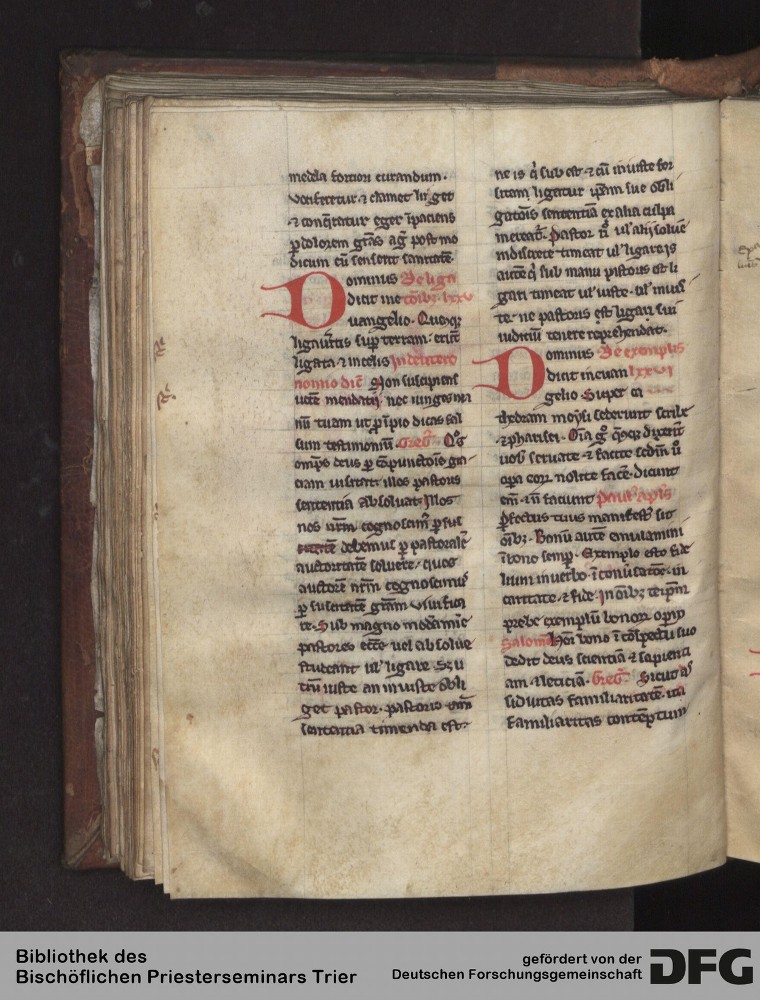 medela fortiori curandum.
Vociferetur ⁊ clamet licet
⁊ conq̄ratur eger īpaciens
p dolorem gr̄as agꝫ post mo
dicum cū senserit sanitatē.
Dominus De liga
dicit in e tōibꝫ. lxxv
uangelio. Quecqꝫ
ligaueritis sup terram: erūt
ligata ⁊ in celis In deutero
nomio dic̄ Non suscipiens
uocē mendacij. nec iunges ma
nū tuam ut p ī pio dicas fal
sum testimoniū. Greg̓. Qͦs
omps deus p cōpunctiōis gra
ciam uisitat: illos pastoris
sententia absoluat. Illos
nos
debemus p pastoralē
auctoritatē soluere. quos
auctorē nr̄m cognoscimꝰ
p suscitatē gram uiuifica
re. Sub magno mod̄amīe
pastores ecc̄e uel absoluē
studeant ul̓ ligare. Seu
tn̄ iuste an iniuste obli
get pastor. pastoris tn̄
sentencia timenda est.
ne is q̓ sub est ⁊ cū iniuste for
sitan ligatur ip̄am sue obli
gatōis sentētiā ex alia culpa
mereat̓. Pastor ū ul̓ absoluē
indiscrete timeat ul̓ ligare is
autē q̓ sub manu pastoris est li
gari timeat ul̓ iuste. ul̓ inius
te. ne pastoris
iudiciū temere reprehendat.
Dominus De exemplis
dicit in euan lxxvi
gelio Super ca
thedram moysi sederunt scribe
⁊ pharisei. Oīa gͦ q̄cqꝫ dixerīt
uob̓ seruate ⁊ facite scd̄m ū
opa eoꝝ nolite facē. Dicunt
em̄. ⁊ n̄ faciunt Paul̓ apl̄s
Pfectus tuus manifestꝰ sit
oībꝫ. Bonū autē emulamini
ī bono semp. Exemplo esto fide
lium in uerbo. ī conūsatōe. in
caritate. ⁊ fide. In oībꝫ te ip̄m
prebe exemplū bonoꝝ opum
Salomō Hoī bono ī cōspectu suo
dedit deus scientiā ⁊ sapienti
am ⁊ leticiā. Greg̓. Sicut as
siduitas familiaritatē. ita
familiaritas contēptum
Bibliothek des
Bischöflichen Priesterseminars Trier
gefördert von der
Deutschen Forschungsgemeinschaft
DFG